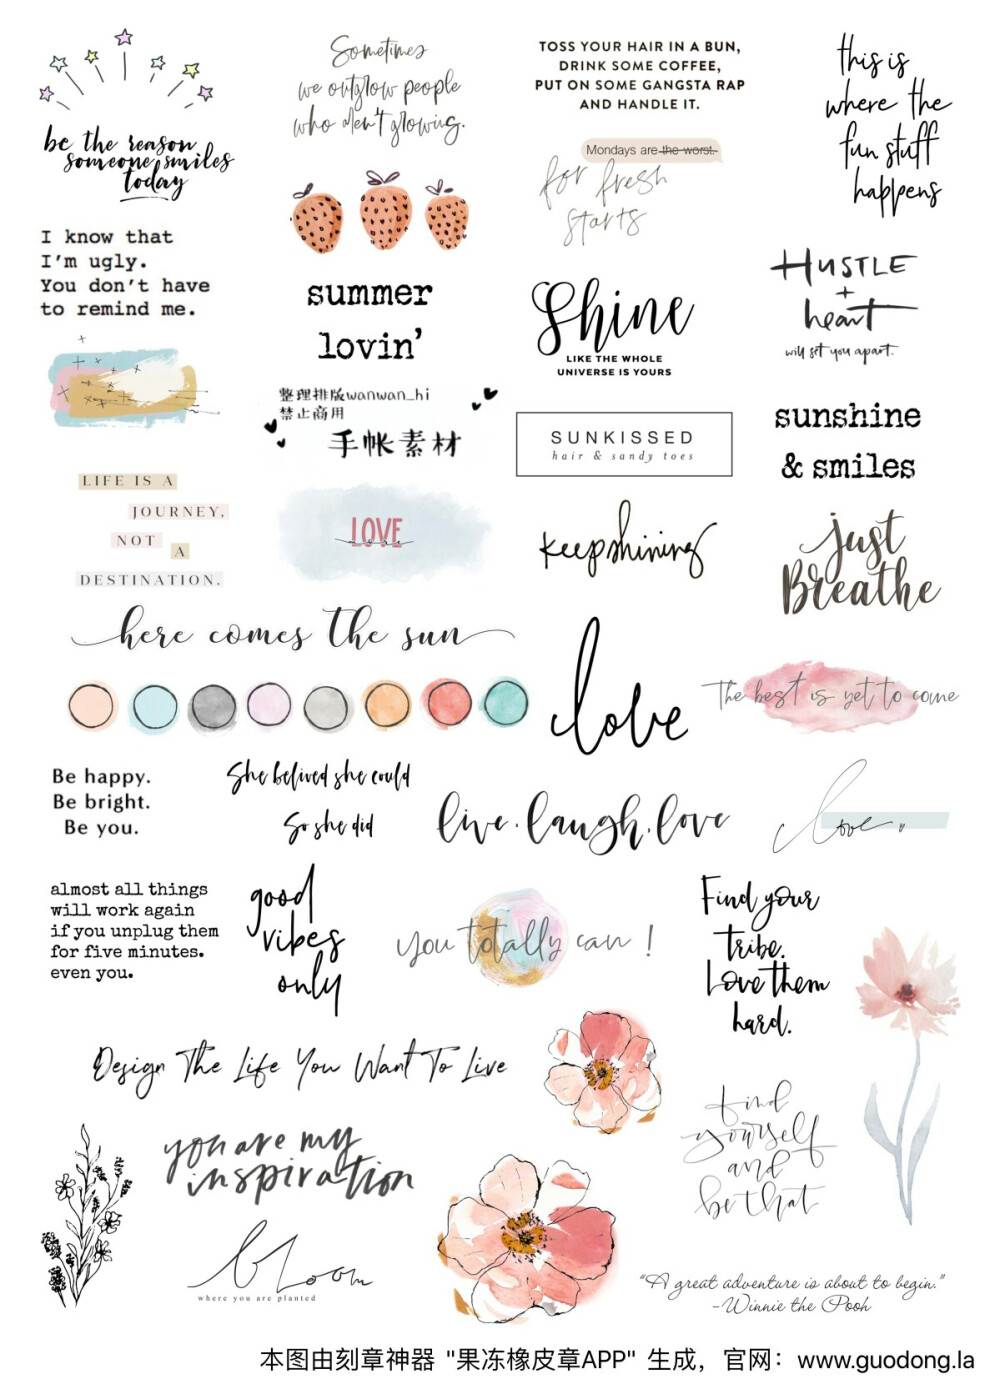 be the reason
someone smiles
today
Sometimes
we outgrow people
who aren't growing.
TOSS YOUR HAIR IN A BUN,
DRINK SOME COFFEE,
PUT ON SOME GANGSTA RAP
AND HANDLE IT.
this is
where the
fun stuff
happens
Mondays are the worst.
for fresh
starts
I know that
I'm ugly.
You don't have
to remind me.
summer
lovin'
Shine
LIKE THE WHOLE
UNIVERSE IS YOURS
HUSTLE
+
heart
will set you apart.
整理排版wanwan_hi
禁止商用
手帐素材
SUNKISSED
hair & sandy toes
sunshine
& smiles
LIFE IS A
JOURNEY,
NOT
A
DESTINATION.
LOVE
keep shining
just
Breathe
here comes the sun
love
The best is yet to come
Be happy.
Be bright.
Be you.
She belived she could
So she did
live.laugh.love
love
almost all things
will work again
if you unplug them
for five minutes.
even you.
good
vibes
only
you totally can !
Find your
tribe.
Love them
hard.
Design The Life You Want To Live
you are my
inspiration
find
yourself
and
be that
bloom
where you are planted
"A great adventure is about to begin."
-Winnie the Pooh
本图由刻章神器 "果冻橡皮章APP" 生成，官网：www.guodong.la